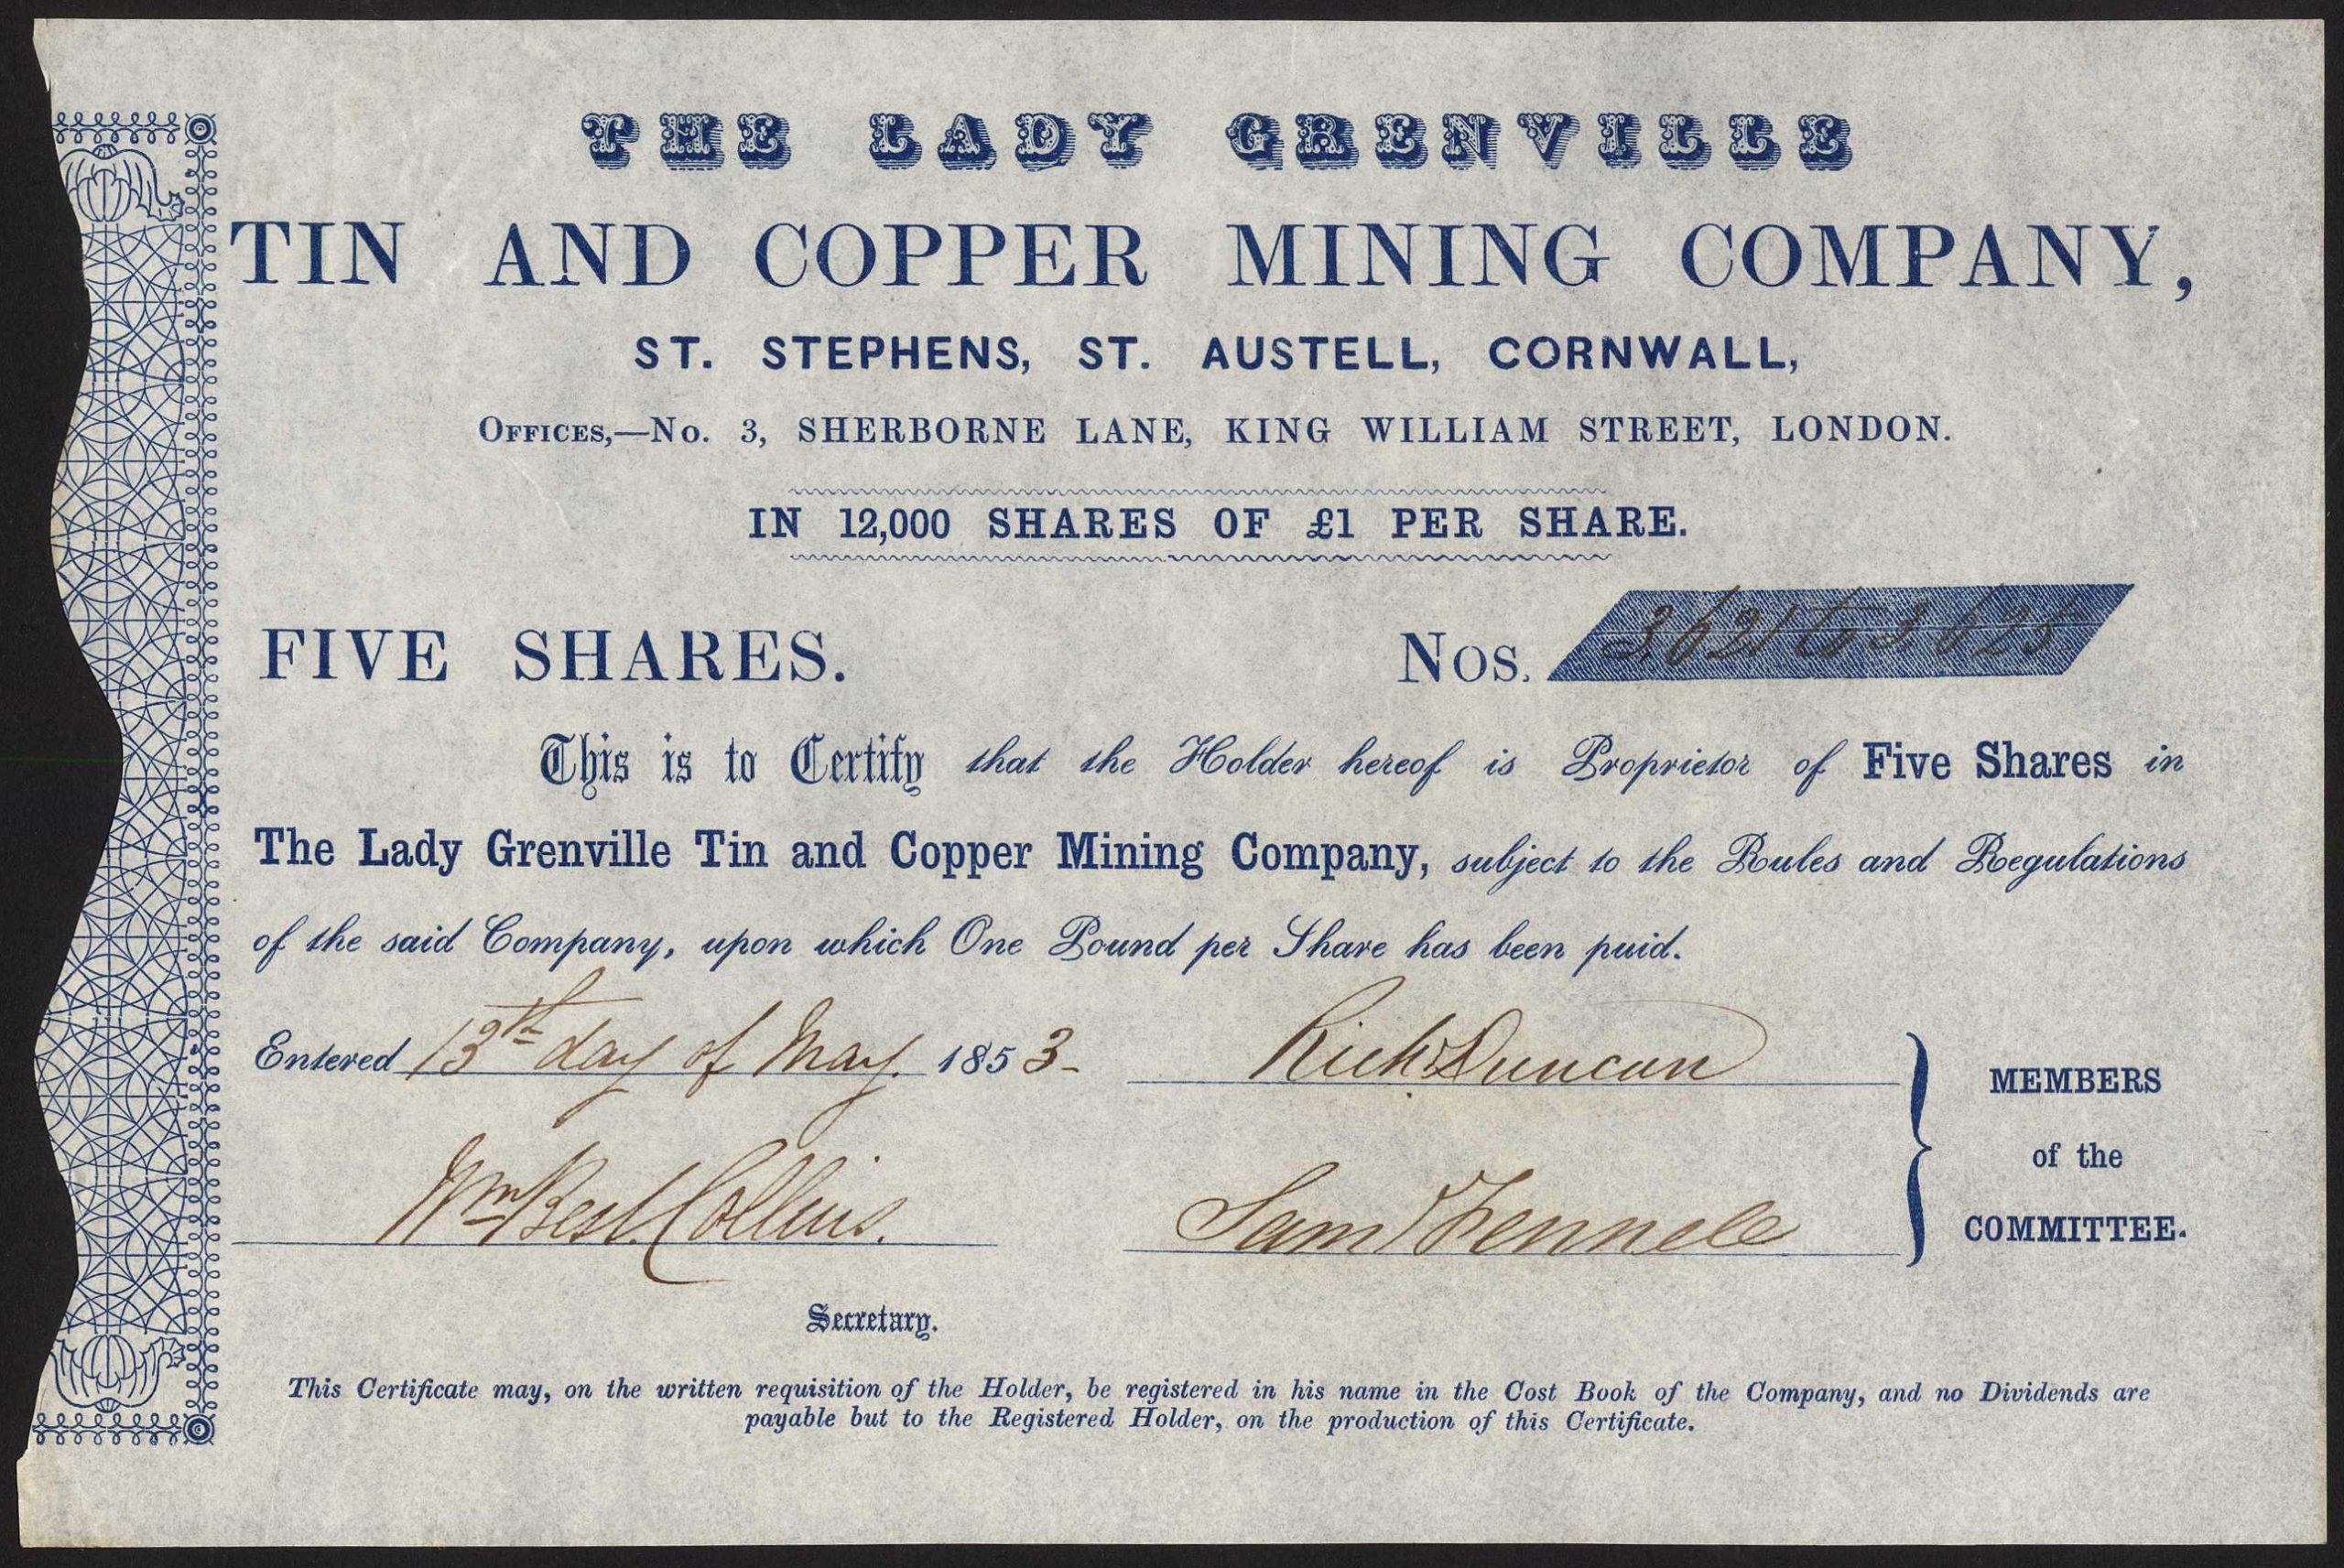 THE LADY GRENVILLE
TIN AND COPPER MINING COMPANY,
ST. STEPHENS, ST. AUSTELL, CORNWALL,
OFFICES,—No. 3, SHERBORNE LANE, KING WILLIAM STREET, LONDON.
IN 12,000 SHARES OF £1 PER SHARE.
FIVE SHARES. Nos. 3,621 to 3,625
This is to Certify that the Holder hereof is Proprietor of Five Shares in
The Lady Grenville Tin and Copper Mining Company, subject to the Rules and Regulations
of the said Company, upon which One Pound per Share has been paid.
Entered 13th day of May. 1853- Rich Duncan
MEMBERS
of the
COMMITTEE.
Wm Best Collins. Saml Fennele
Secretary.
This Certificate may, on the written requisition of the Holder, be registered in his name in the Cost Book of the Company, and no Dividends are
payable but to the Registered Holder, on the production of this Certificate.